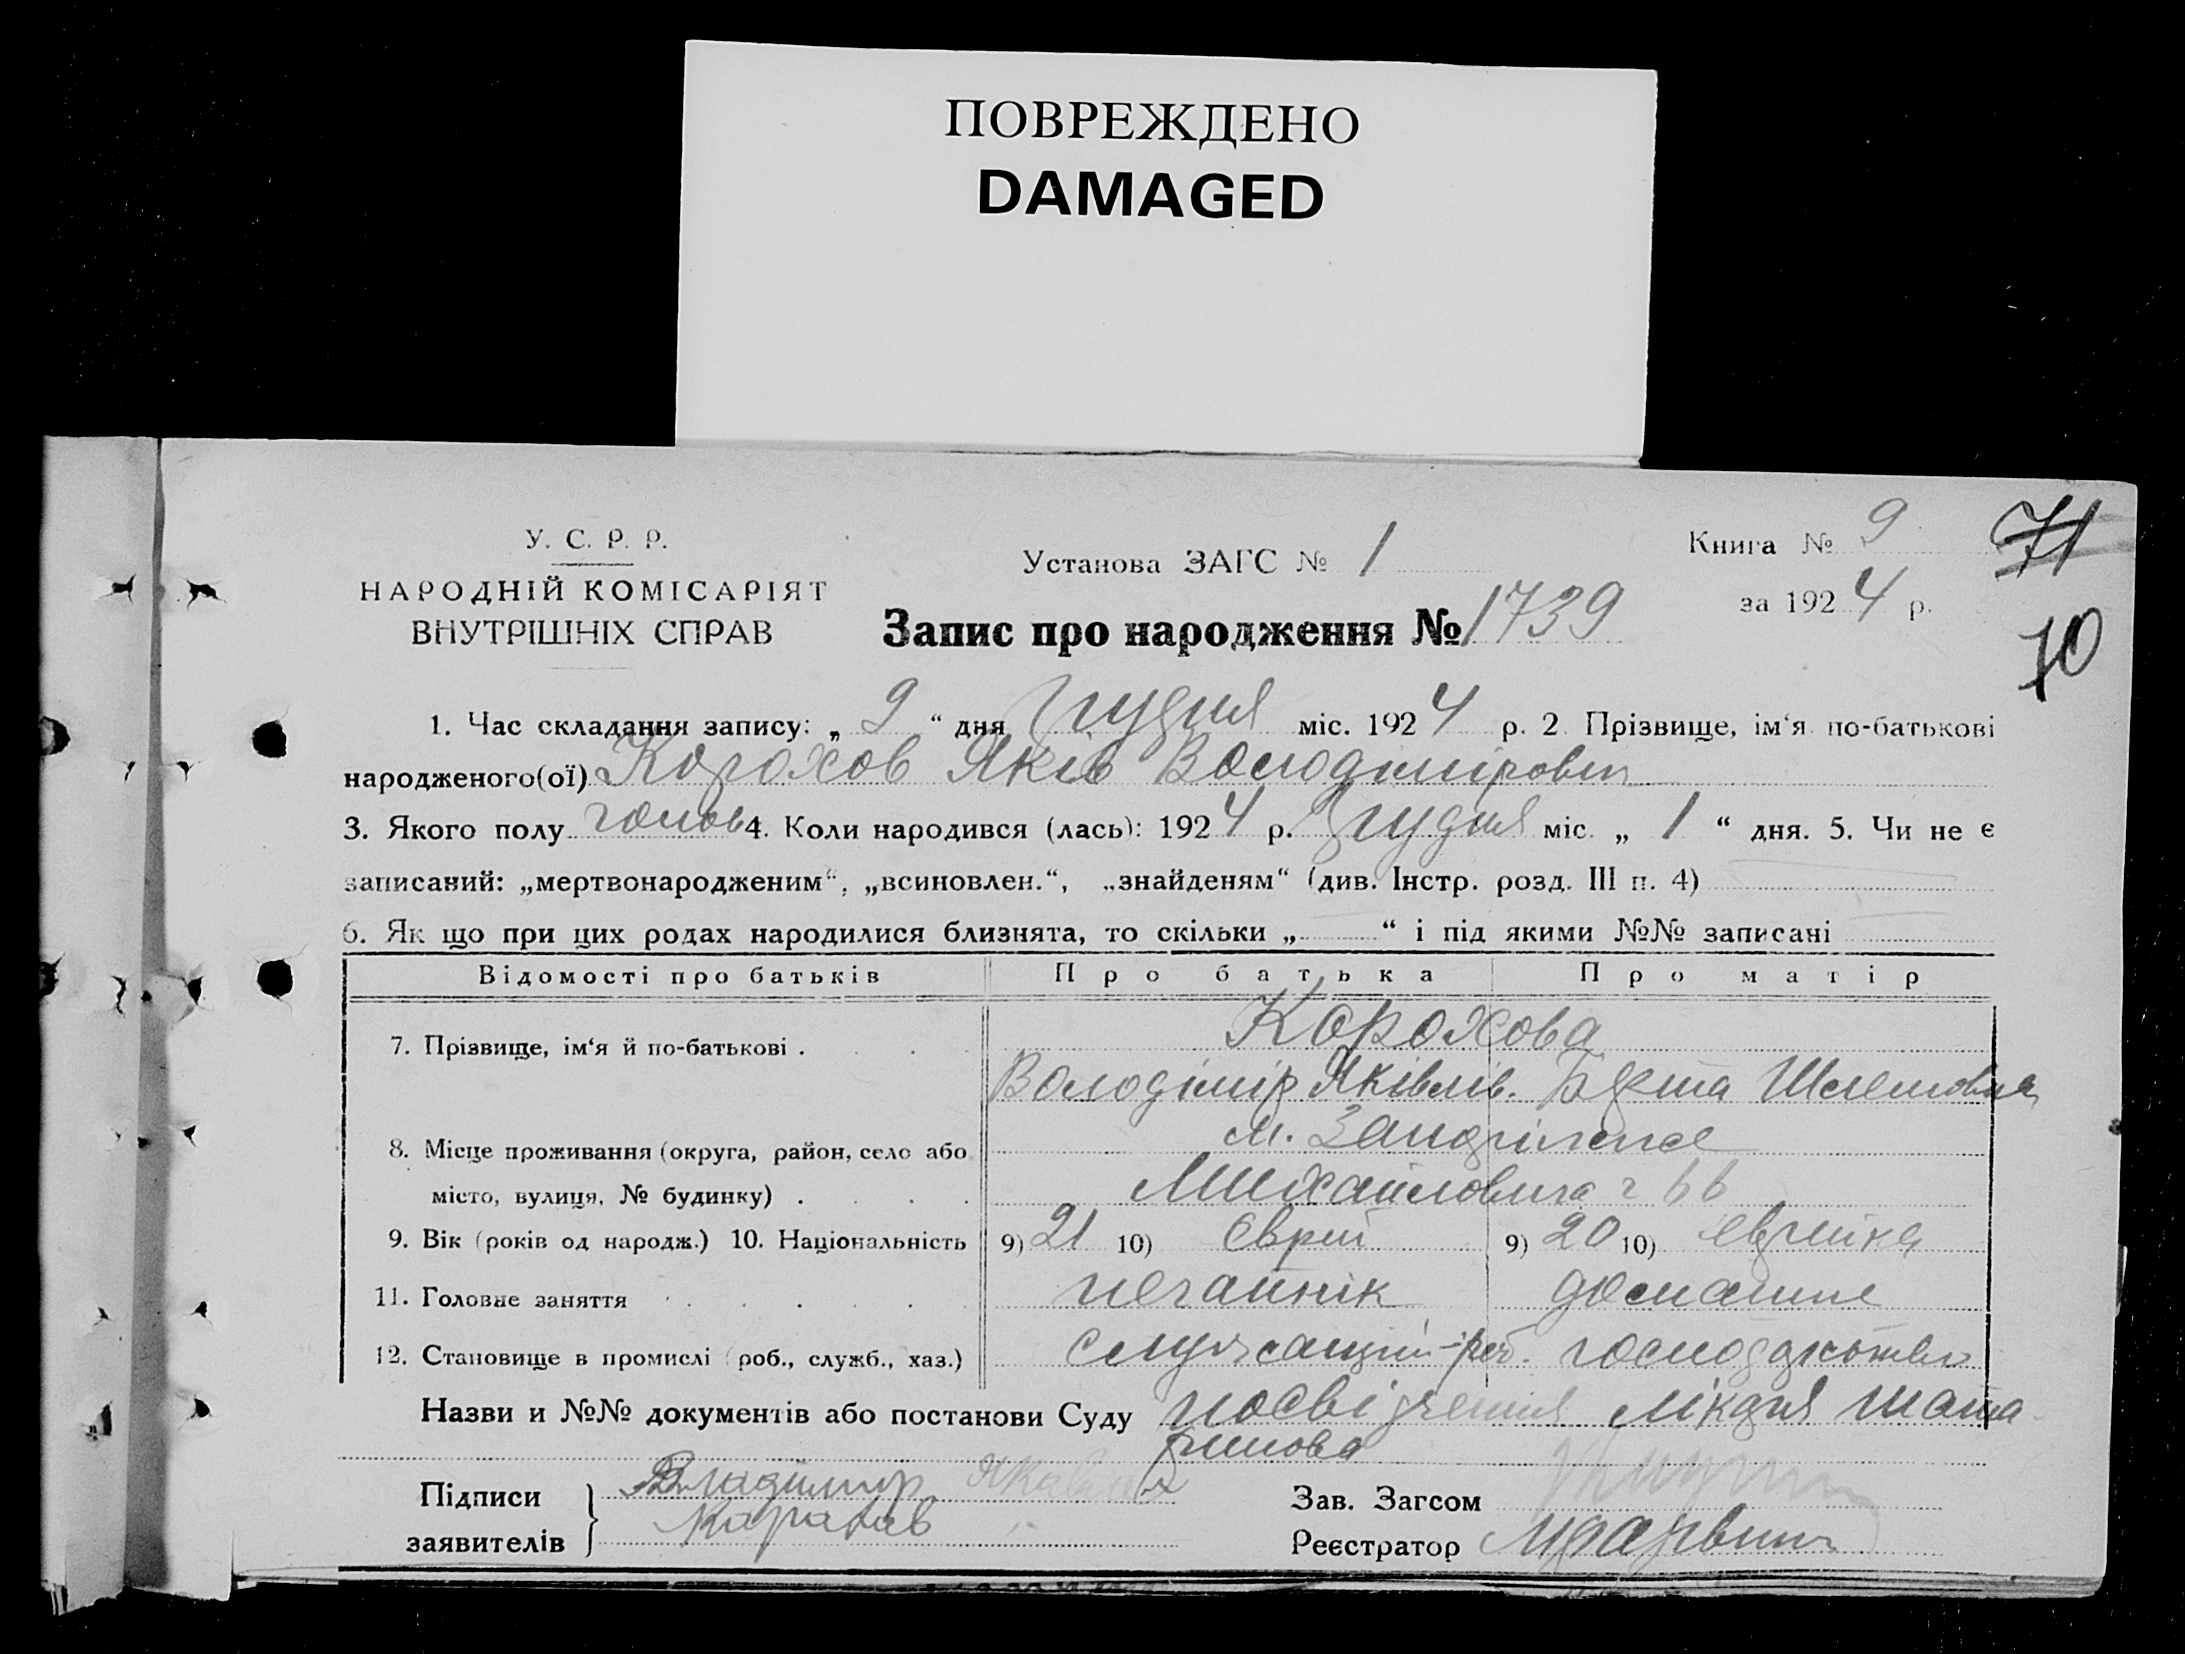 ПОВРЕЖДЕНО
DAMAGED
У. С. Р. Р.
НАРОДНІЙ КОМІСАРІЯТ
ВНУТРІШНІХ СПРАВ
Установа ЗАГС № 1
Книга № 9
за 1924 р.
71
70
Запис про народження № 1739
1. Час складання запису: „ 9 “ дня Грудня міс. 1924 р. 2. Прізвище, ім‘я по-батькові
народженого(ої) Корохов Яків Володімірович
3. Якого полу чолов 4. Коли народився (лась): 1924 р. Грудня міс. „ 1 “ дня. 5. Чи не є
записаний: „мертвонародженим“, „всиновлен.“, „знайденям“ (див. Інстр. розд. III п. 4)
6. Як що при цих родах народилися близнята, то скільки „ “ і під якими №№ записані
Відомості про батьків Про батька Про матір
7. Прізвище, ім‘я й по-батькові . Корохова
Володімір Яківлів. Берта Шлемовна
8. Місце проживання (округа, район, село або м.
місто, вулиця, № будинку) . Михайловича 66
9. Вік (років од народж.) 10. Національність 9) 21 10) Єврей 9) 20 10) єврейка
11. Головне заняття домашнє
12. Становище в промислі (роб., служб., хаз.) служащий господарство
Назви и №№ документів або постанови Суду посвідчення лікаря
Підписи Владимир
заявителів Карахов
Зав. Загсом
Реєстратор